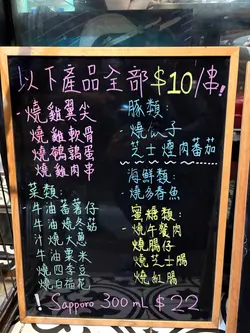 以下產品全部$10/串!
- 燒雞翼尖
燒雞軟骨
燒鵪鶉蛋
燒雞肉串
菜類:
- 牛油蕃薯仔
牛油燒冬菇
汁燒大蔥
牛油粟米
燒四季豆
燒百福花
豚類:
- 燒子
芝士煙肉蕃茄
海鮮類:
- 燒多春魚
蜜糖類:
- 燒午餐肉
燒腸仔
燒芝士腸
燒紅腸
! Sapporo 300mL $22